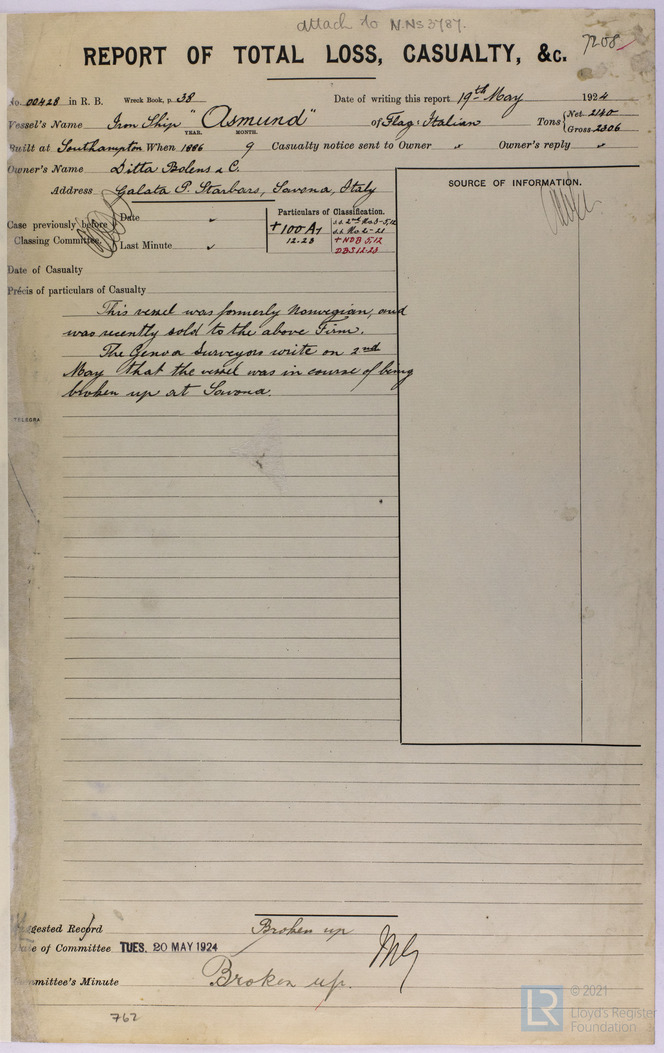 attach to N.Ns 3787.
7208
REPORT OF TOTAL LOSS, CASUALTY, &c.
No. 00428 in R. B. Wreck Book, p. 38 Date of writing this report 19th May 1924
Vessel's Name Iron Ship "Asmund" of Flag: Italian Tons { Net 2140
YEAR. MONTH. Gross 2306
Built at Southampton When 1886 9 Casualty notice sent to Owner " Owner's reply "
Owner's Name Ditta Bolens & C.
Address Galata P. Starbars, Savona, Italy
SOURCE OF INFORMATION.
Case previously before Classing Committee
Date "
Last Minute "
Particulars of Classification.
+100A1
12.23
s.s. 2nd No.3-5,12
s.s. No.2-21
+NDB 5,12
DBS 12.23
Date of Casualty
Précis of particulars of Casualty
This vessel was formerly Norwegian, and
was recently sold to the above Firm.
The Genoa Surveyors write on 2nd
May that the vessel was in course of being
broken up at Savona.
TELEGRA
gested Record Broken up
te of Committee TUES. 20 MAY 1924
mmittee's Minute Broken up.
762
LR © 2021
Lloyd's Register
Foundation